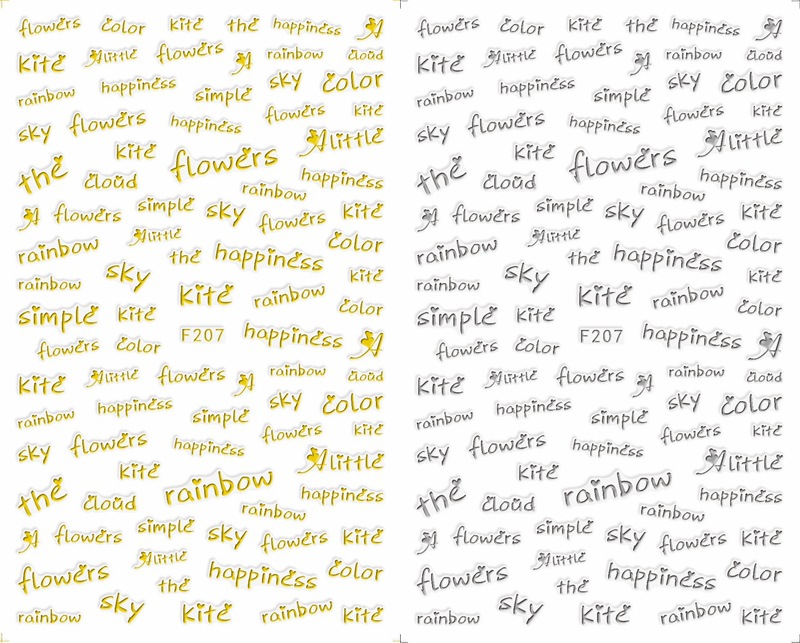 flowers color kite the happiness A
kite A little flowers A rainbow cloud
rainbow happiness simple sky color
sky flowers happiness flowers kite
kite flowers A little
the cloud rainbow happiness
A flowers simple sky flowers kite
rainbow A little the happiness color
rainbow sky kite rainbow kite
simple kite color
flowers color F207 happiness A
kite A little flowers A rainbow cloud
rainbow happiness simple sky color
sky flowers happiness flowers kite
kite rainbow A little
the cloud rainbow happiness
A flowers simple sky flowers kite
flowers A little the happiness color
rainbow sky kite rainbow kite
flowers color kite the happiness A
kite A little flowers A rainbow cloud
rainbow happiness simple sky color
sky flowers happiness flowers kite
kite flowers A little
the cloud rainbow happiness
A flowers simple sky flowers kite
rainbow A little the happiness color
rainbow sky kite rainbow kite
simple kite color
flowers color F207 happiness A
kite A little flowers A rainbow cloud
rainbow happiness simple sky color
sky flowers happiness flowers kite
kite rainbow A little
the cloud rainbow happiness
A flowers simple sky flowers kite
flowers A little the happiness color
rainbow sky kite rainbow kite